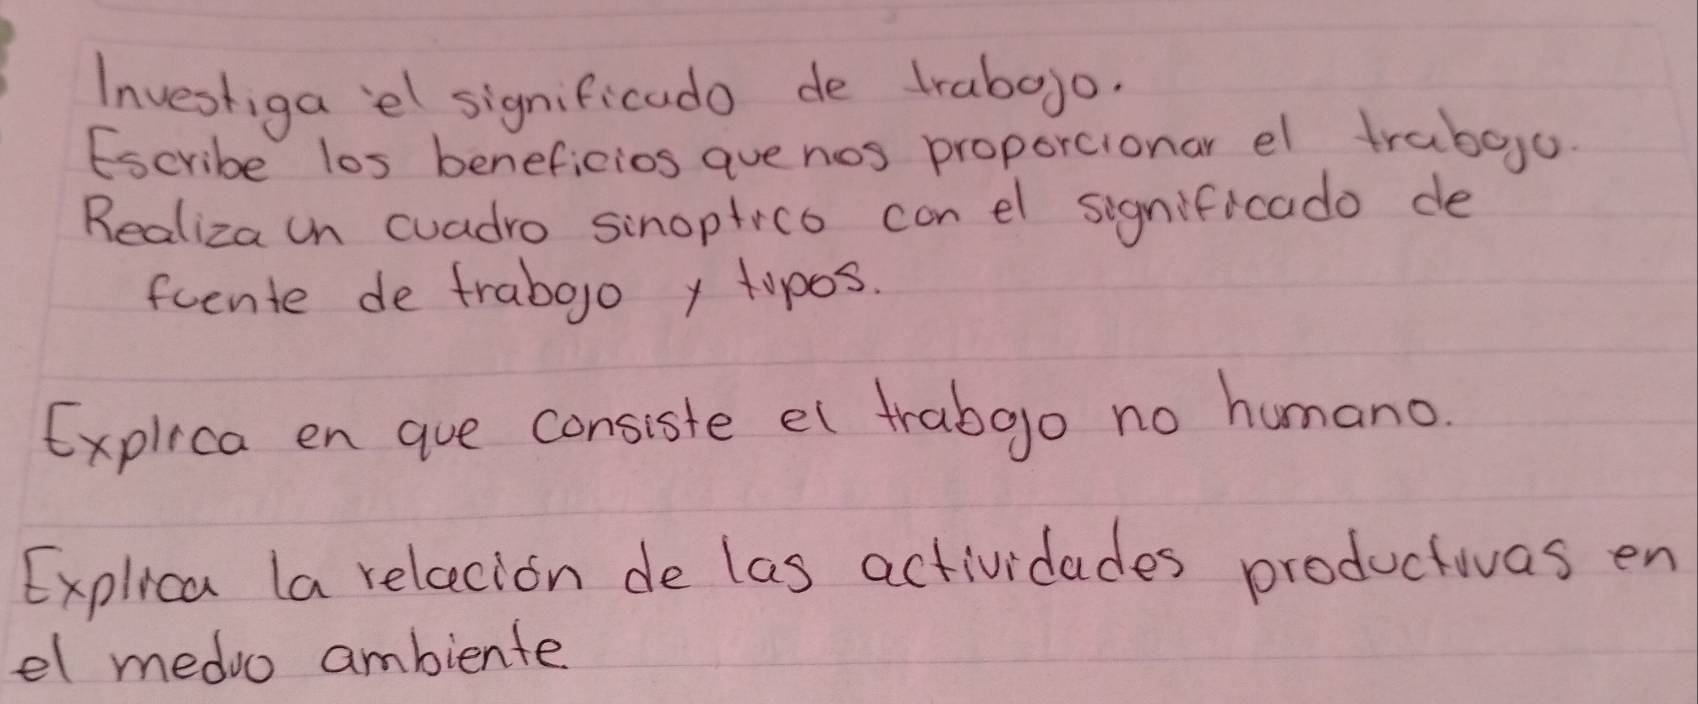 Investiga el significado de trabajo.
Escribe los beneficios que nos proporcionar el trabajo.
Realiza un cuadro sinoptico con el significado de
fuente de trabajo y tipos.
Explica en que consiste el trabajo no humano.
Explica la relación de las actividades productivas en
el medio ambiente